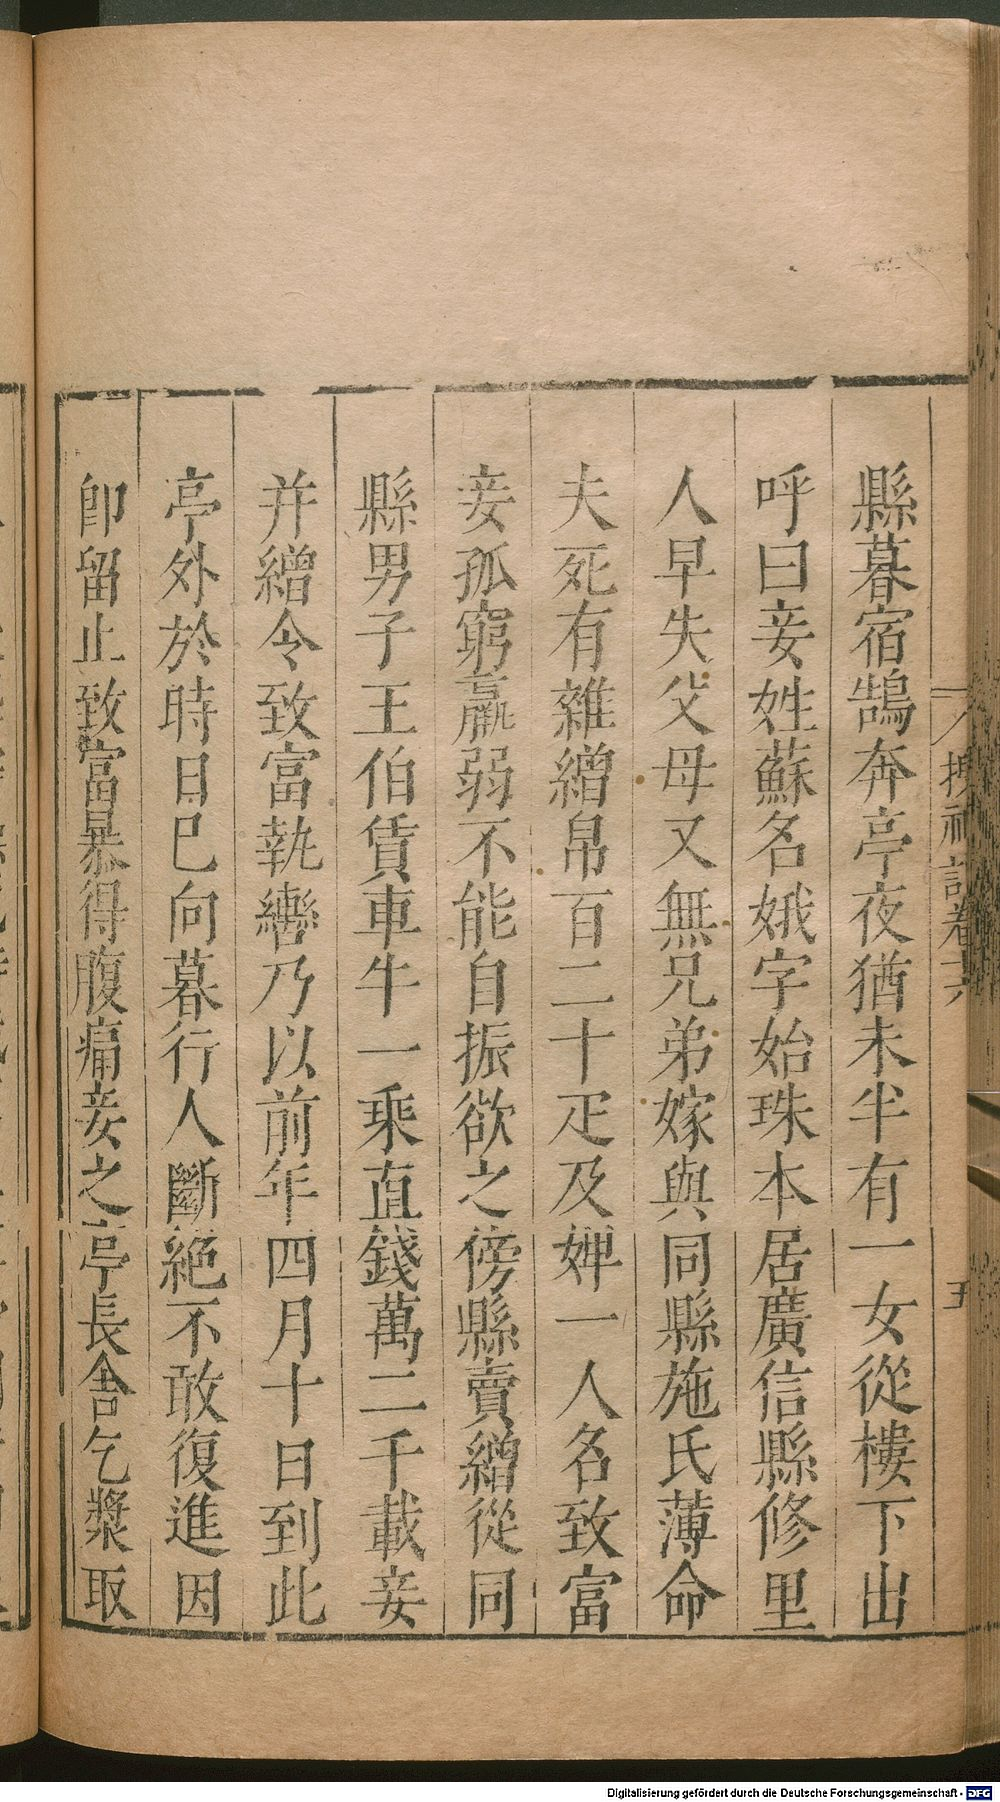 搜神記卷十六
五
縣暮宿鵠奔亭夜猶未半有一女從樓下出
呼曰妾姓蘇名娥字始珠本居廣信縣修里
人早失父母又無兄弟嫁與同縣施氏薄命
夫死有雜繒帛百二十疋及婢一人名致富
妾孤窮羸弱不能自振欲之傍縣賣繒從同
縣男子王伯賃車牛一乘直錢萬二千載妾
并繒令致富執轡乃以前年四月十日到此
亭外於時日巳向暮行人斷絕不敢復進因
卽留止致富暴得腹痛妾之亭長舍乞漿取
Digitalisierung gefördert durch die Deutsche Forschungsgemeinschaft - DFG